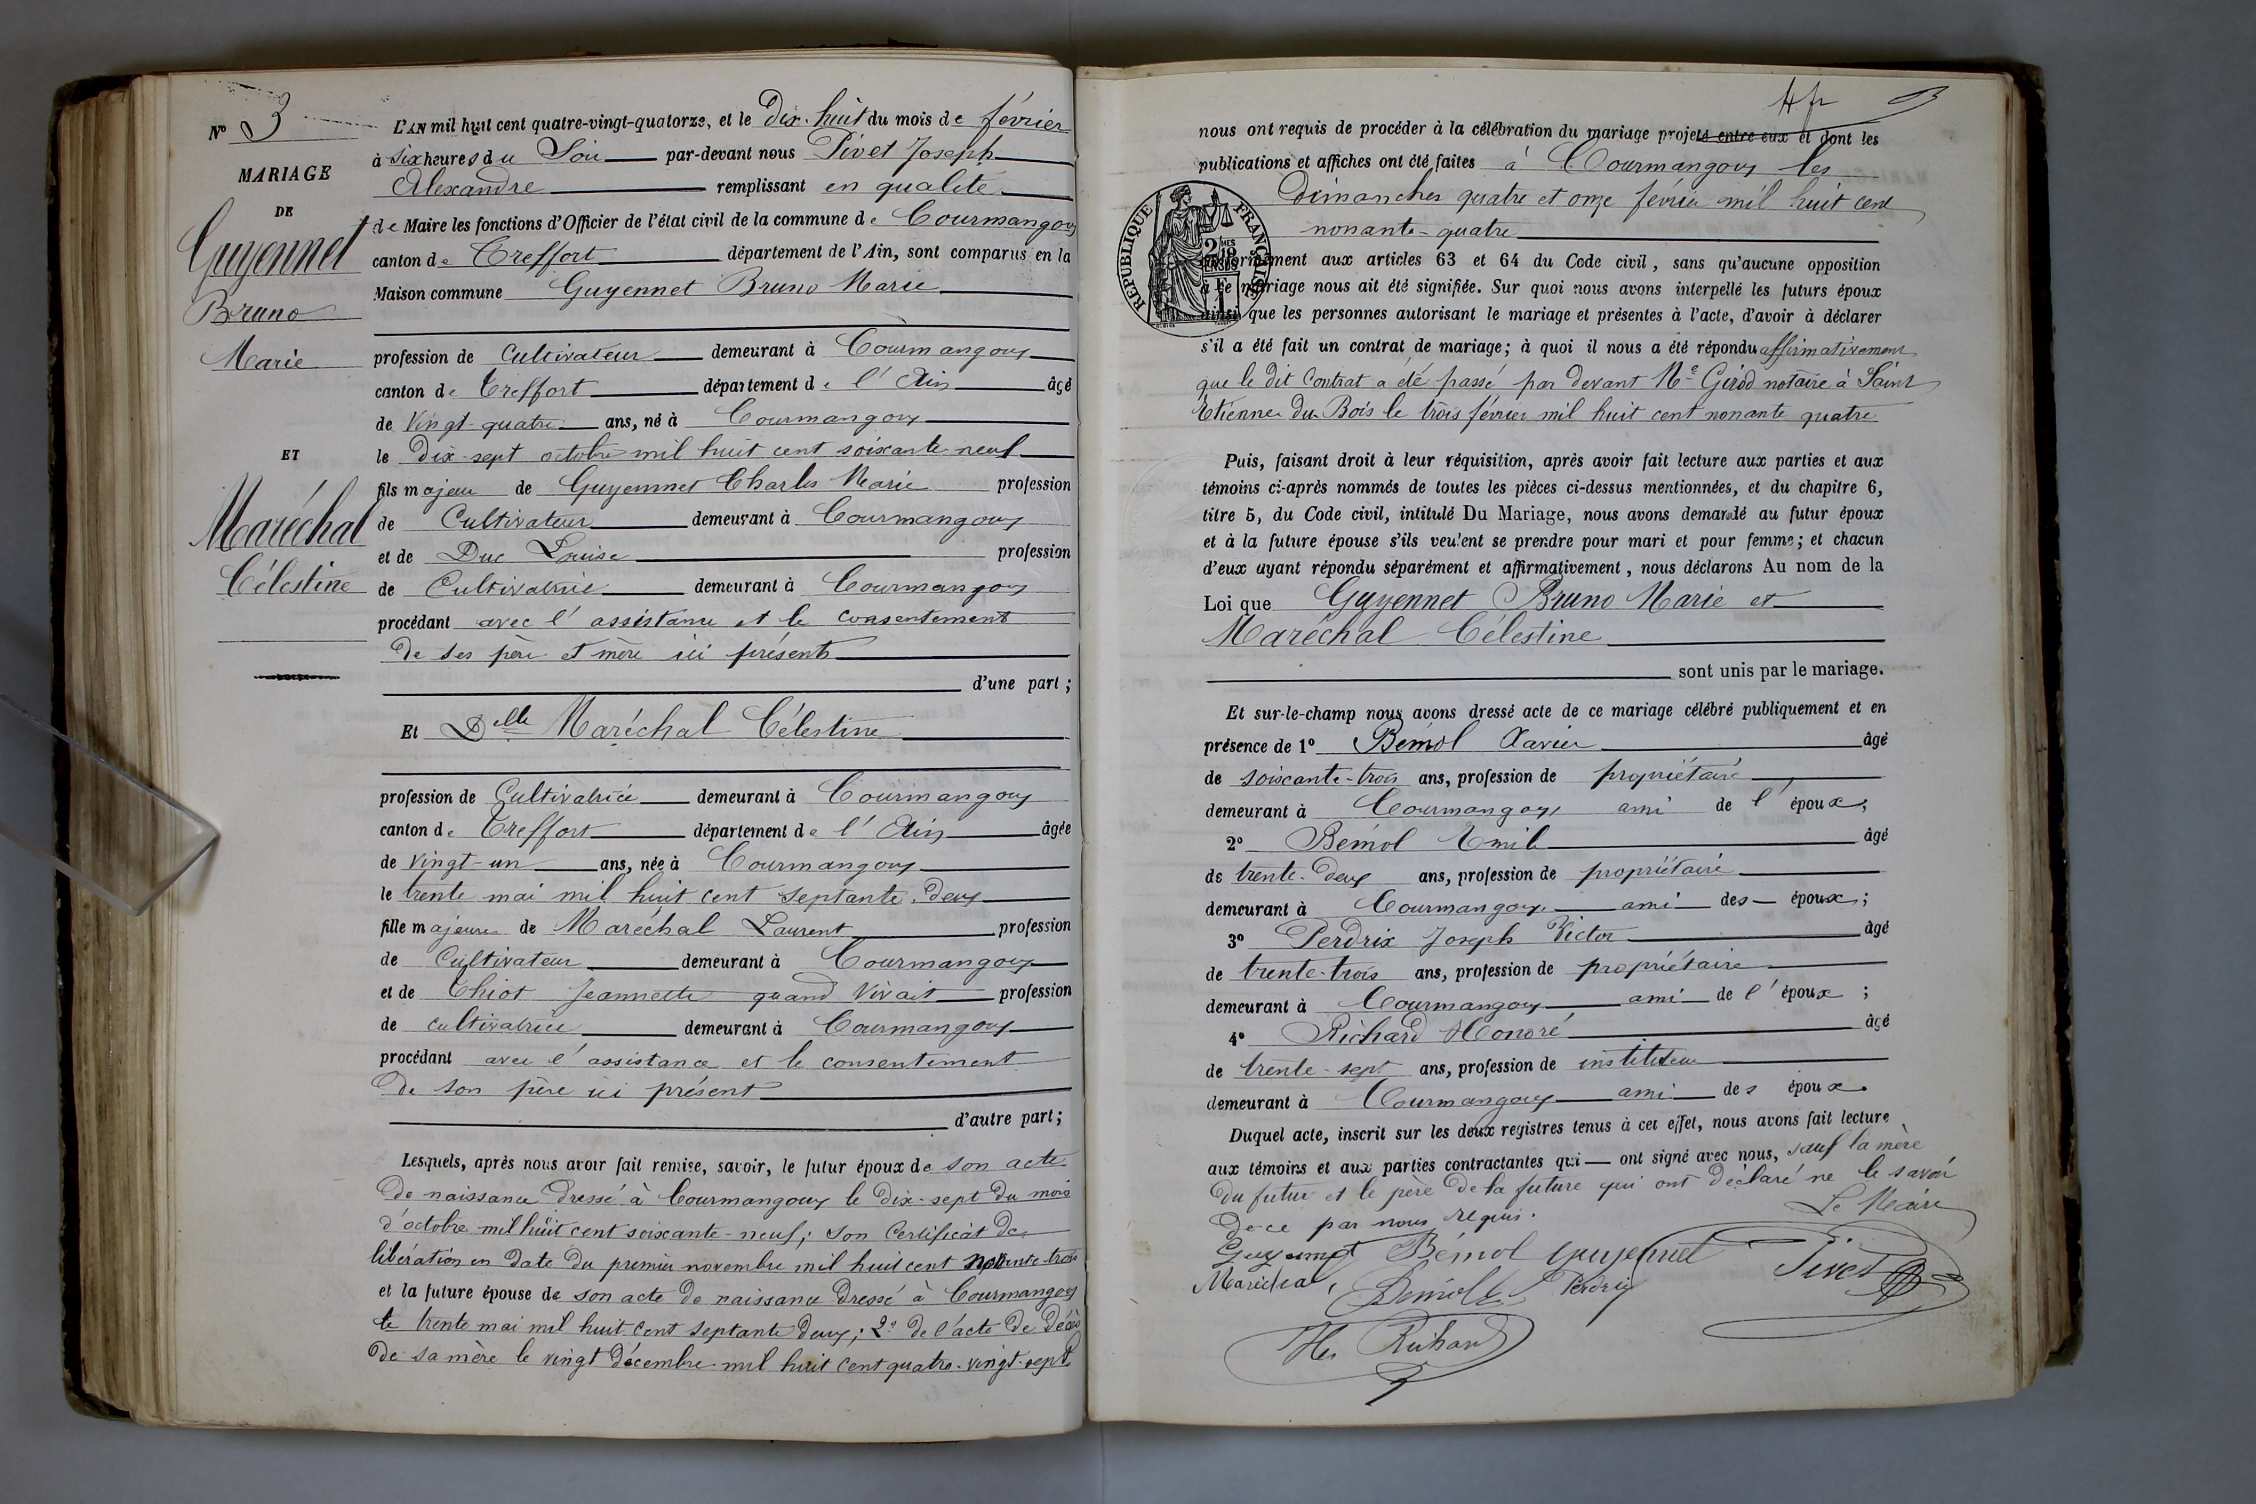 N° 3
MARIAGE
DE
Guyennet
Bruno
Marie
ET
Maréchal
Célestine
L'AN mil huit cent quatre-vingt-quatorze, et le Dix-huit du mois de février
à six heures du Soir par-devant nous Pivet Joseph
Alexandre remplissant en qualité
de Maire les fonctions d'Officier de l'état civil de la commune de Courmangoux
canton de Treffort département de l'Ain, sont comparus en la
Maison commune Guyennet Bruno Marie
profession de Cultivateur demeurant à Courmangoux
canton de Treffort département de l'Ain âgé
de Vingt-quatre ans, né à Courmangoux
le Dix-sept octobre mil huit cent soixante-neuf
fils majeur de Guyennet Charles Marie profession
de Cultivateur demeurant à Courmangoux
et de Duc Louise profession
de Cultivatrice demeurant à Courmangoux
procédant avec l'assistance et le consentement
de ses père et mère ici présents
d'une part ;
Et Delle Maréchal Célestine
profession de Cultivatrice demeurant à Courmangoux
canton de Treffort département de l'Ain âgée
de vingt-un ans, née à Courmangoux
le trente mai mil huit cent septante-deux
fille majeure de Maréchal Laurent profession
de Cultivateur demeurant à Courmangoux
et de Chiot Jeannette quand vivait profession
de cultivatrice demeurant à Courmangoux
procédant avec l'assistance et le consentement
de son père ici présent
d'autre part ;
Lesquels, après nous avoir fait remise, savoir, le futur époux de son acte
de naissance dressé à Courmangoux le dix-sept du mois
d'octobre mil huit cent soixante-neuf ; son certificat de
libération en date du premier novembre mil huit cent nonante-trois
et la future épouse de son acte de naissance dressé à Courmangoux
le trente mai mil huit cent septante deux ; 2° de l'acte de décès
de sa mère le vingt décembre mil huit cent quatre-vingt-sept
nous ont requis de procéder à la célébration du mariage projeté entre eux et dont les
publications et affiches ont été faites à Courmangoux les
dimanches quatre et onze février mil huit cent
nonante-quatre
RÉPUBLIQUE FRANÇAISE
conformément aux articles 63 et 64 du Code civil, sans qu'aucune opposition
à ce mariage nous ait été signifiée. Sur quoi nous avons interpellé les futurs époux
ainsi que les personnes autorisant le mariage et présentes à l'acte, d'avoir à déclarer
s'il a été fait un contrat de mariage ; à quoi il nous a été répondu affirmativement
que le dit Contrat a été passé par devant Me Girod notaire à Saint
Etienne du Bois le trois février mil huit cent nonante quatre
Puis, faisant droit à leur réquisition, après avoir fait lecture aux parties et aux
témoins ci-après nommés de toutes les pièces ci-dessus mentionnées, et du chapitre 6,
titre 5, du Code civil, intitulé Du Mariage, nous avons demandé au futur époux
et à la future épouse s'ils veulent se prendre pour mari et pour femme ; et chacun
d'eux ayant répondu séparément et affirmativement, nous déclarons Au nom de la
Loi que Guyennet Bruno Marie et
Maréchal Célestine
sont unis par le mariage.
Et sur-le-champ nous avons dressé acte de ce mariage célébré publiquement et en
présence de 1° Bémol Xavier âgé
de soixante-trois ans, profession de propriétaire
demeurant à Courmangoux ami de l'époux ;
2° Bémol Emile âgé
de trente-deux ans, profession de propriétaire
demeurant à Courmangoux ami des époux ;
3° Perdrix Joseph Victor âgé
de trente-trois ans, profession de propriétaire
demeurant à Courmangoux ami de l'époux ;
4° Richard Honoré âgé
de trente-sept ans, profession de instituteur
demeurant à Courmangoux ami des époux.
Duquel acte, inscrit sur les deux registres tenus à cet effet, nous avons fait lecture
aux témoins et aux parties contractantes qui ont signé avec nous, sauf la mère
du futur et le père de la future qui ont déclaré ne le savoir
de ce par nous requis.
Le Maire
Guyennet Bémol Guyennet Pivet
Maréchal Bémol E Perdrix
Hré Richard